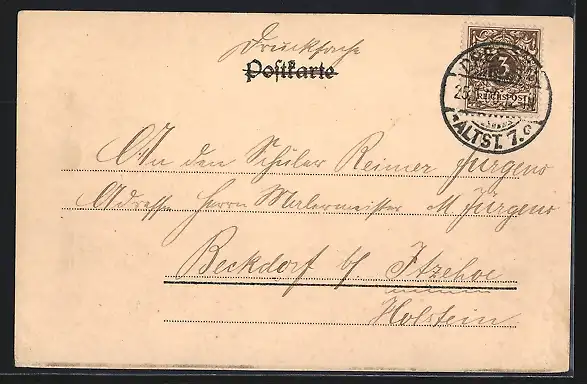 Drucksache
Postkarte
3
REICHSPOST
DRES
25
ALTST. 7.
An den Schüler Reimer Jürgens
Adresse Herrn Malermeister M Jürgens
Beckdorf b/ Itzehoe
Holstein